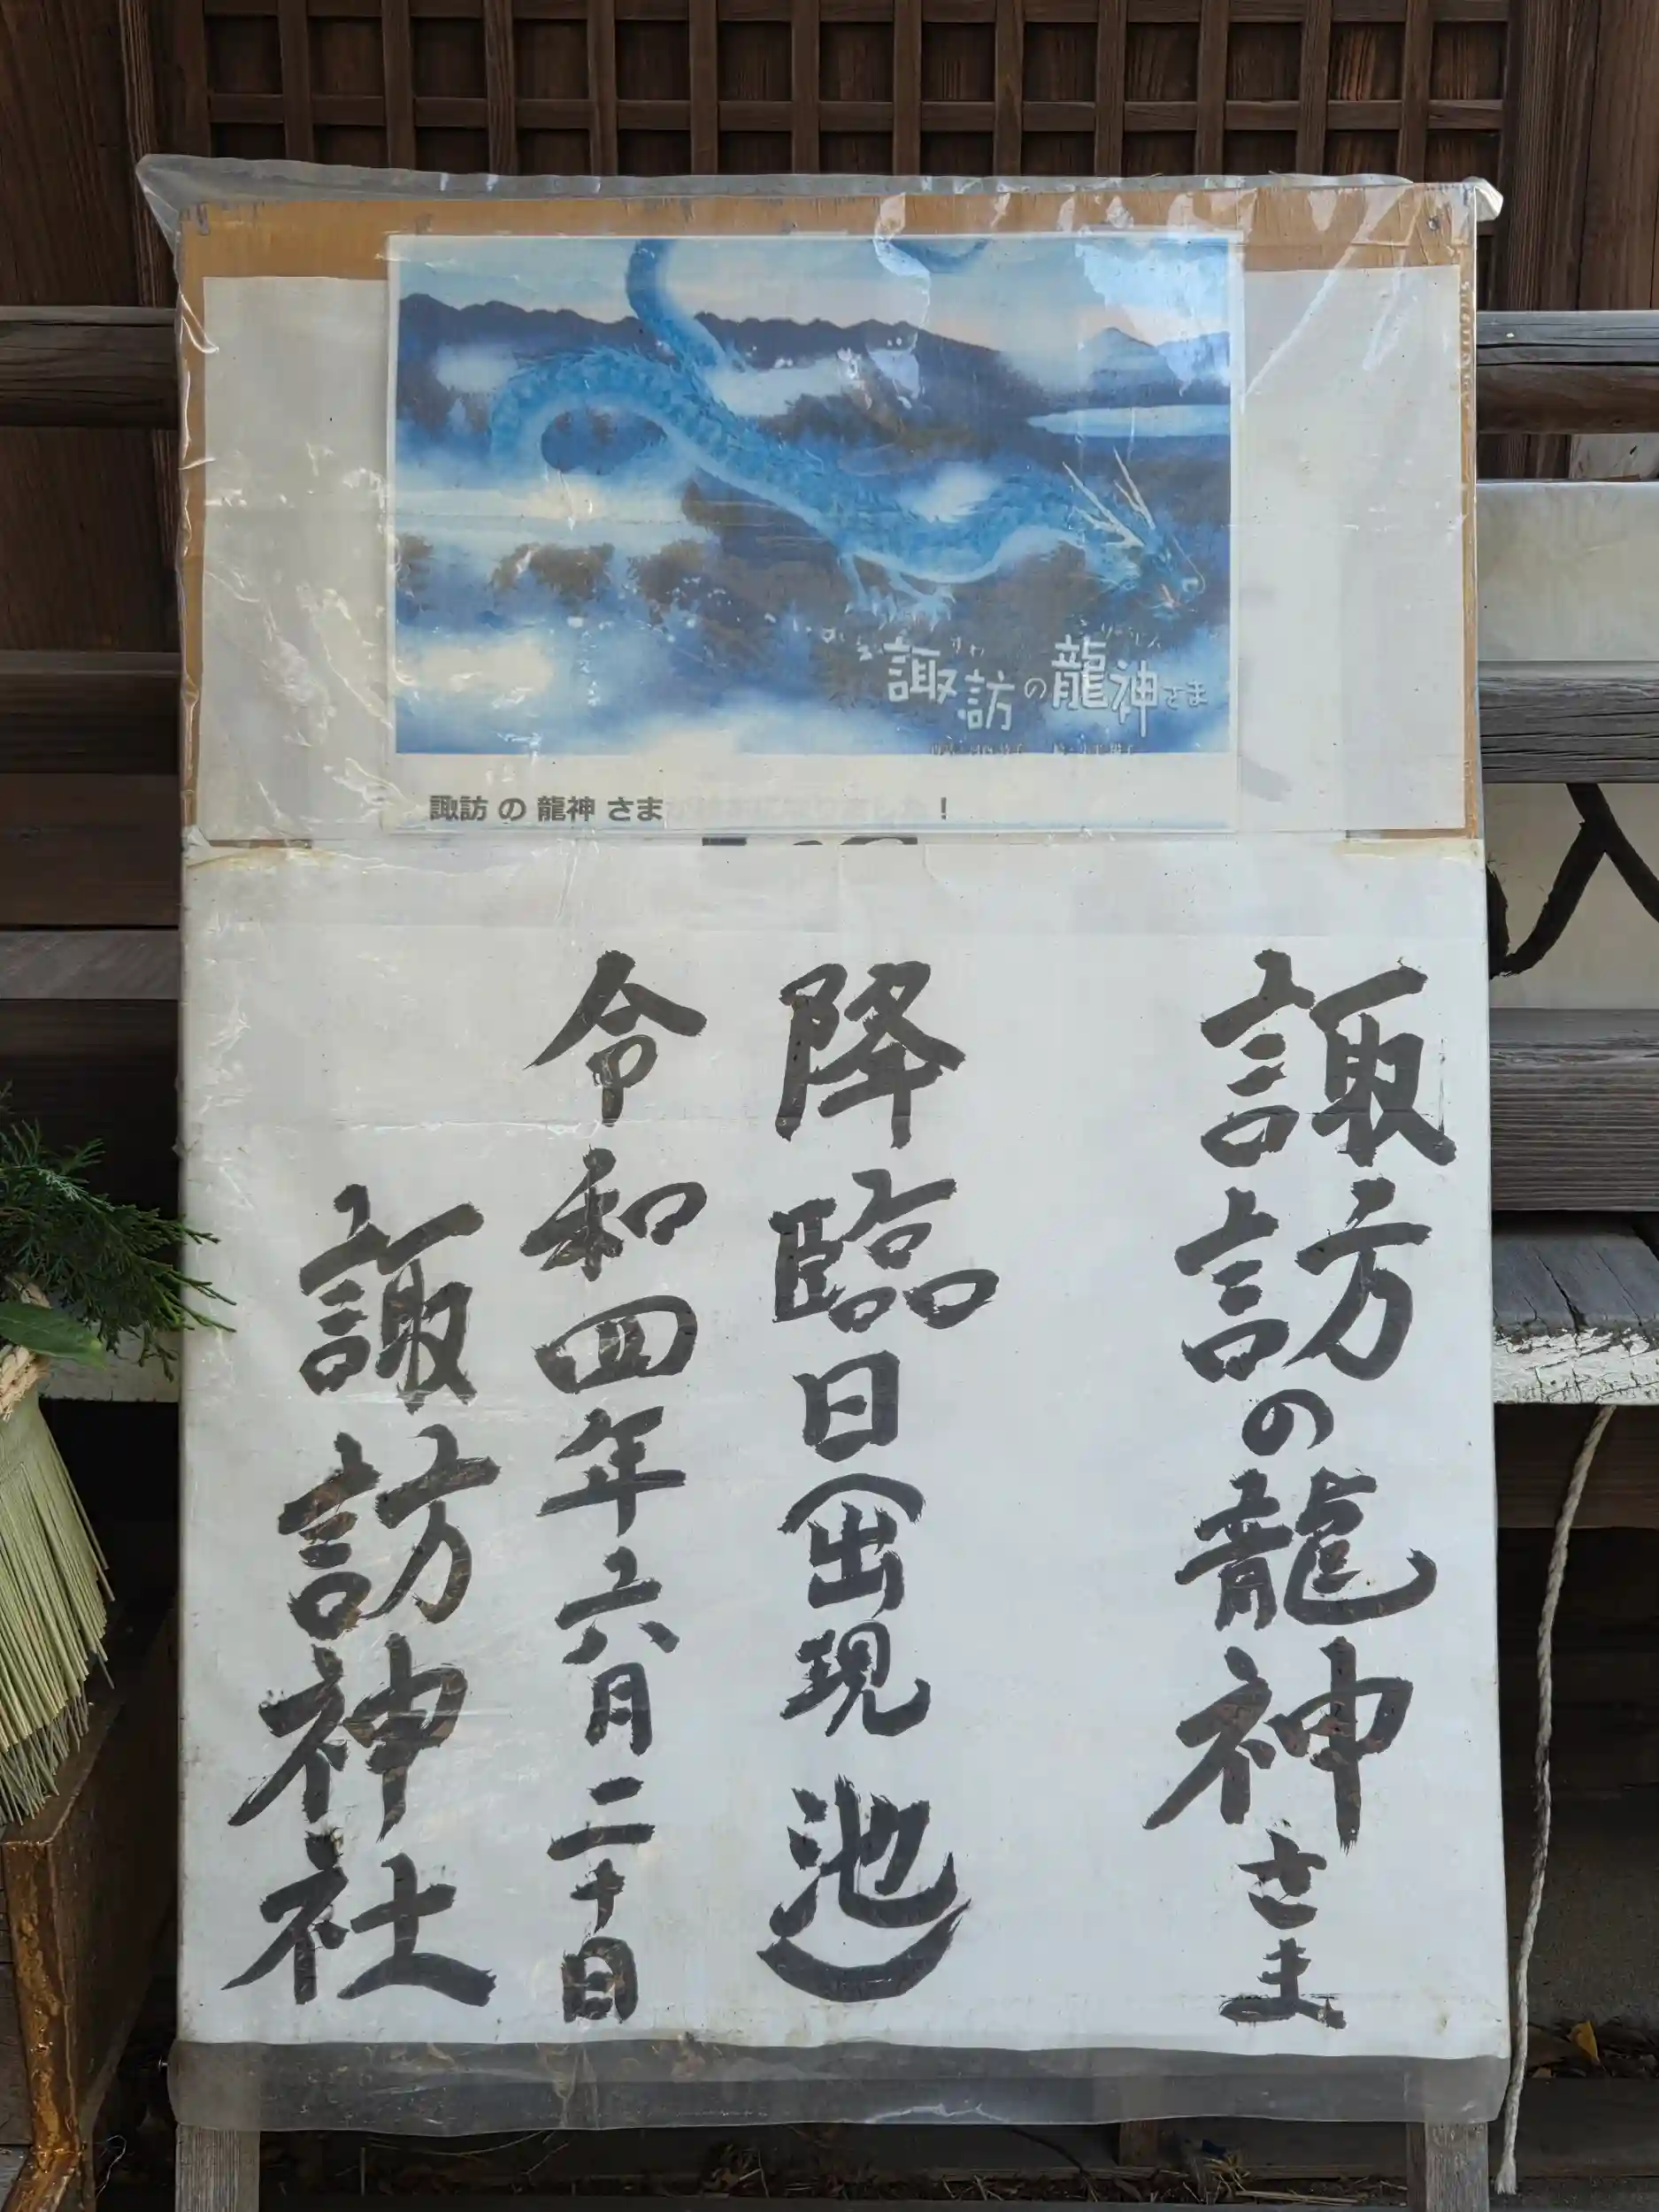 諏訪の龍神さま
諏訪 の 龍神 さま
諏訪の龍神さま
降臨日(出現 池)
令和四年六月二十日
諏訪神社